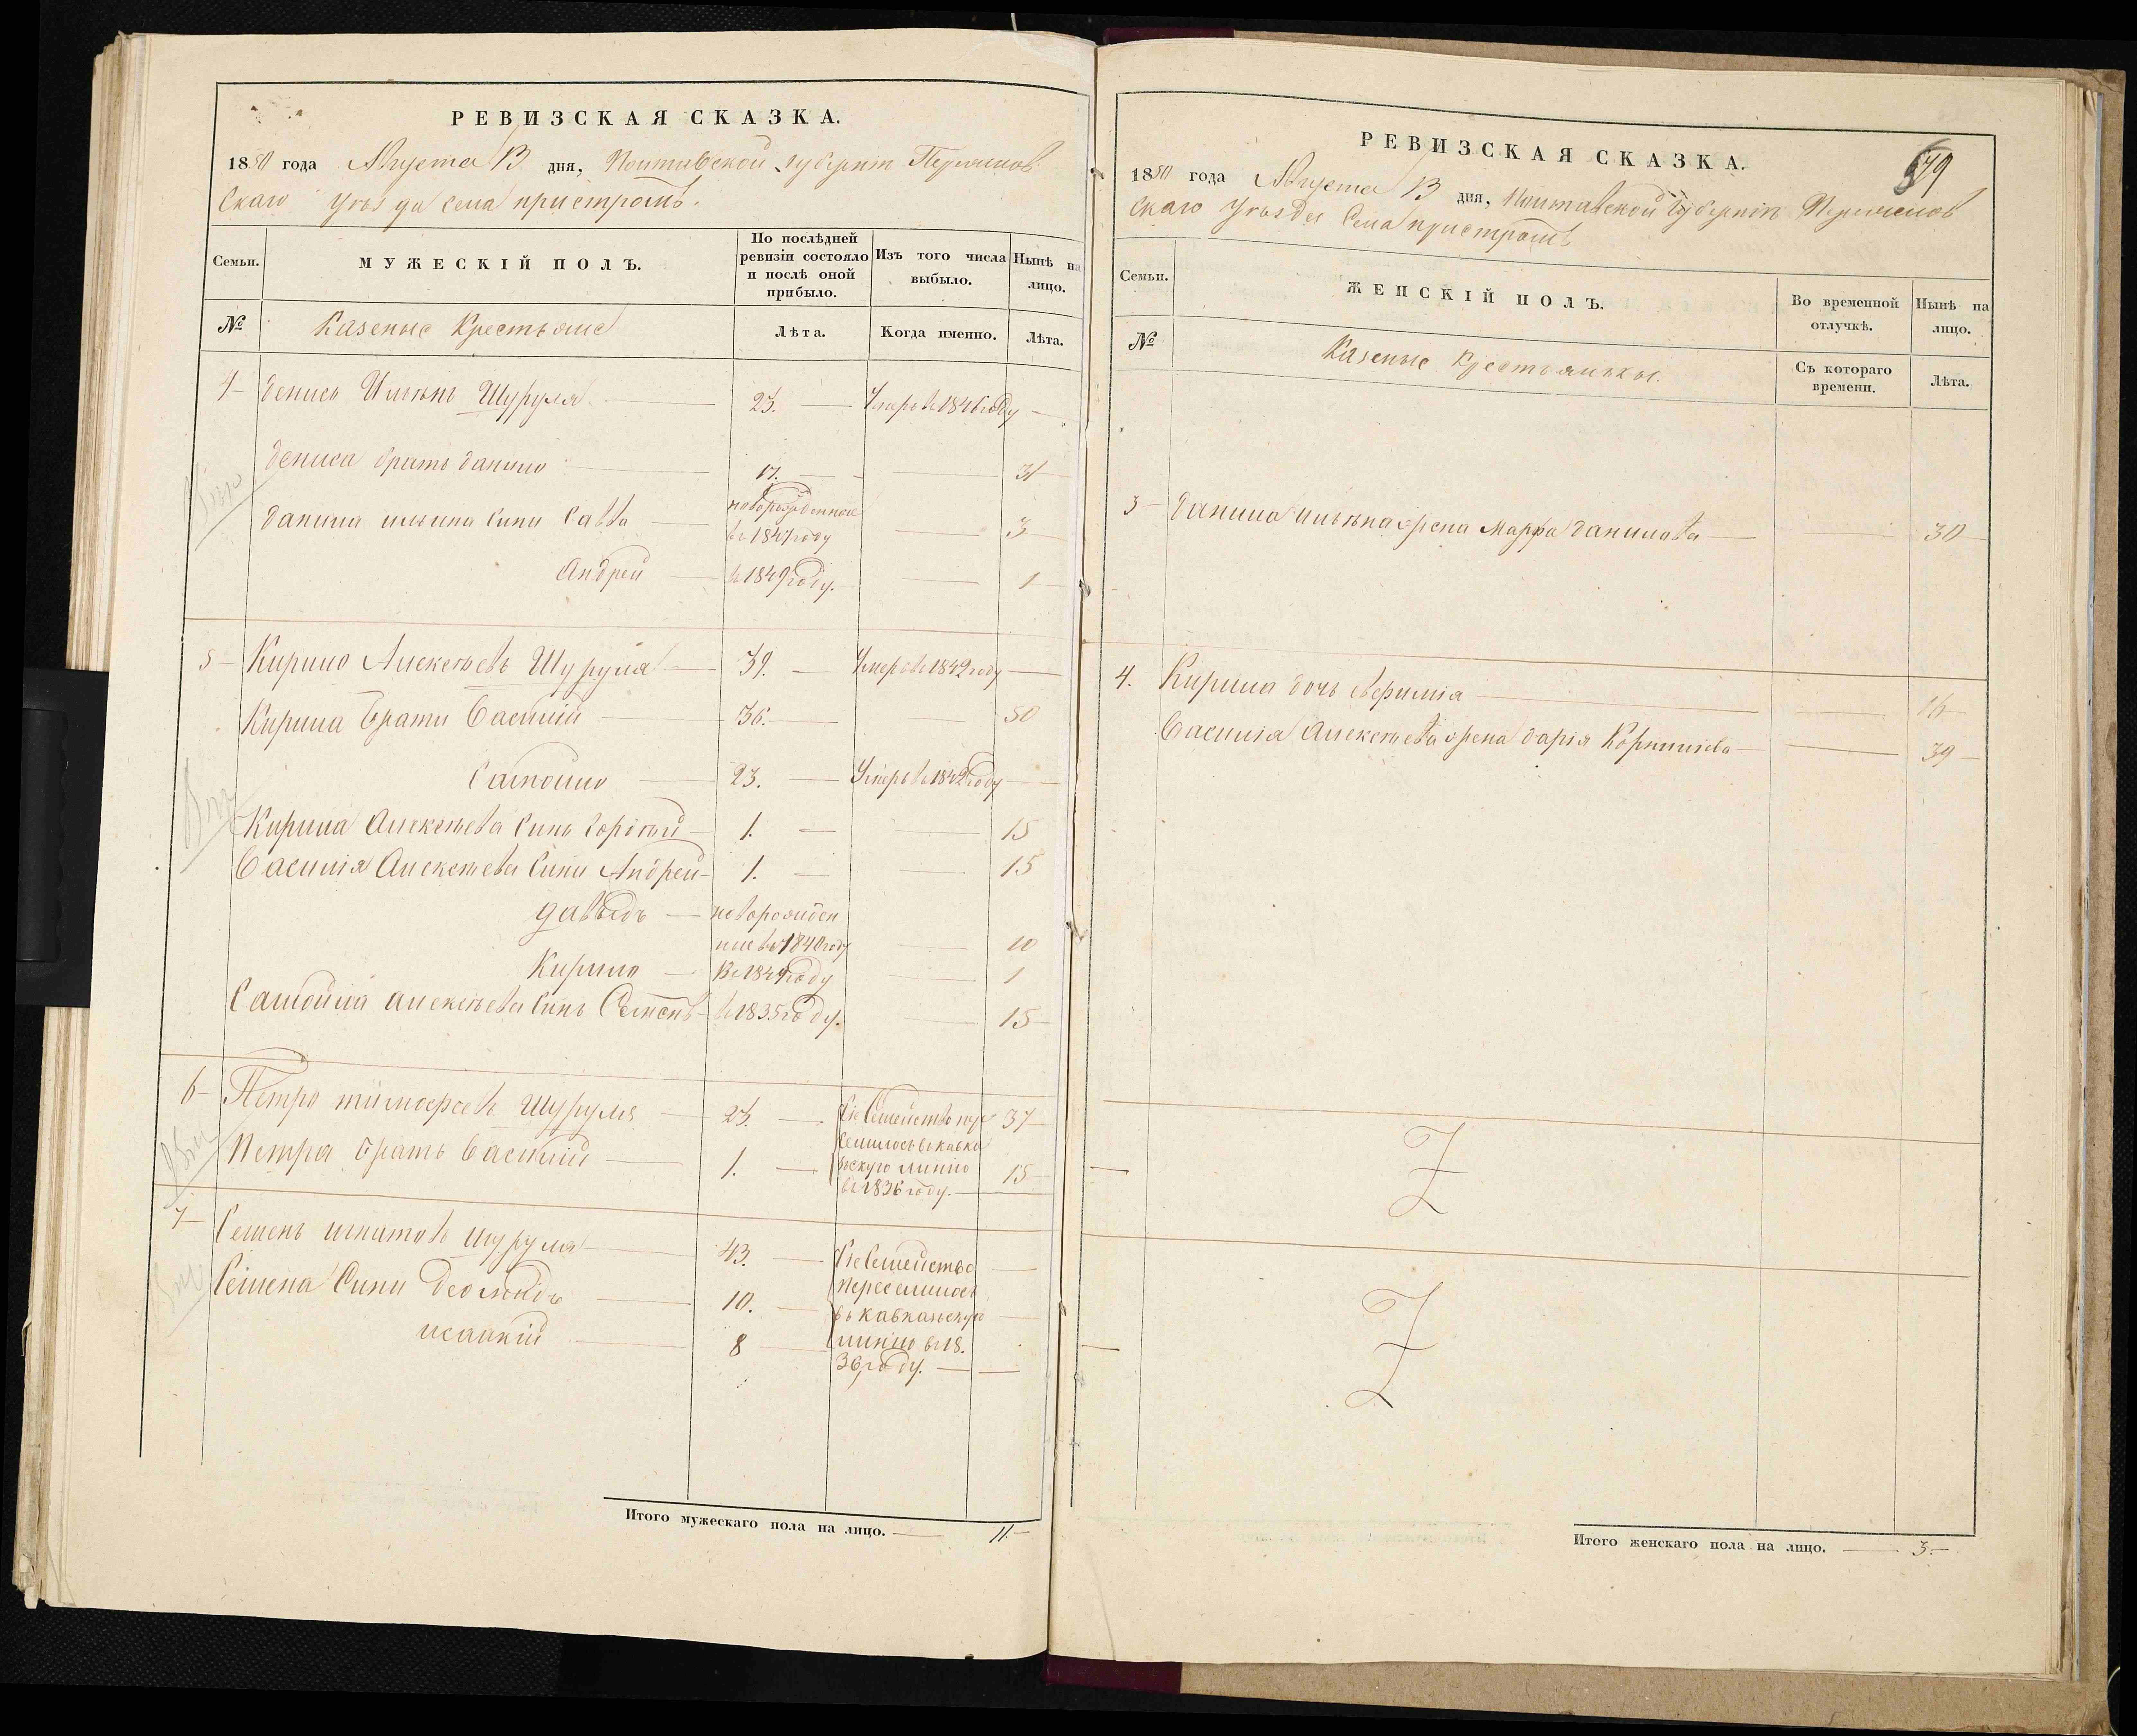 РЕВИЗСКАЯ СКАЗКА.
1850 года Августа 13 дня, Полтавской губерніи
скаго уѣзда села Пристромъ.
Семьи.
МУЖЕСКІЙ ПОЛЪ.
По послѣдней ревизіи состояло и послѣ оной прибыло.
Изъ того числа выбыло.
Нынѣ на лицо.
№
Казеные Крестьяне
Лѣта.
Когда именно.
Лѣта.
4 Денисъ Ильинъ Шуруля 25. Умеръ в 1846 году
Дениса братъ Данило 17. 31
Данила ильина Сини Савва новорожденные в 1847 году 3
Андрей в 1849 году. 1
5 Кирило Алексѣевъ Шуруля 39. Умеръ в 1842 году
Кирила брати Василій 36. 50
Самойло 23. Умеръ в 1842 году
Кирила Алексѣева Синъ 1. 15
Василія Алексѣева Сини Андрей 1. 15
давыдъ новорожден
ние в 1840 году 10
Кирило В 1849 году 1
Самойла алексѣева Синъ Семенъ в 1835 году. 15
6 Петро тимофеевъ Шуруля 23. Сіе Семейство пере 37
селилось в кавка
Петра братъ Василій 1. зскую линію 15
в 1836 году.
7 Семенъ игнатовъ шуруля 43. Сіе Семейство
переселилось
Семена Сини 10. въ кавказскую
исаакій 8 линію в 18.
36 году.
Итого мужескаго пола на лицо. 11.
РЕВИЗСКАЯ СКАЗКА.
1850 года Августа 13 дня, Полтавской губерніи
скаго уѣзда Села пристромъ
Семьи.
ЖЕНСКІЙ ПОЛЪ.
Во временной отлучкѣ.
Нынѣ на лицо.
№
Казеные крестьянки.
Съ котораго времени.
Лѣта.
3 Данила ильина жена Марфа Данилова 30
4. Кирила дочь Евфимія 16
Василія Алексѣева жена Дарія Корнилиева 39
Итого женскаго пола на лицо. 3.